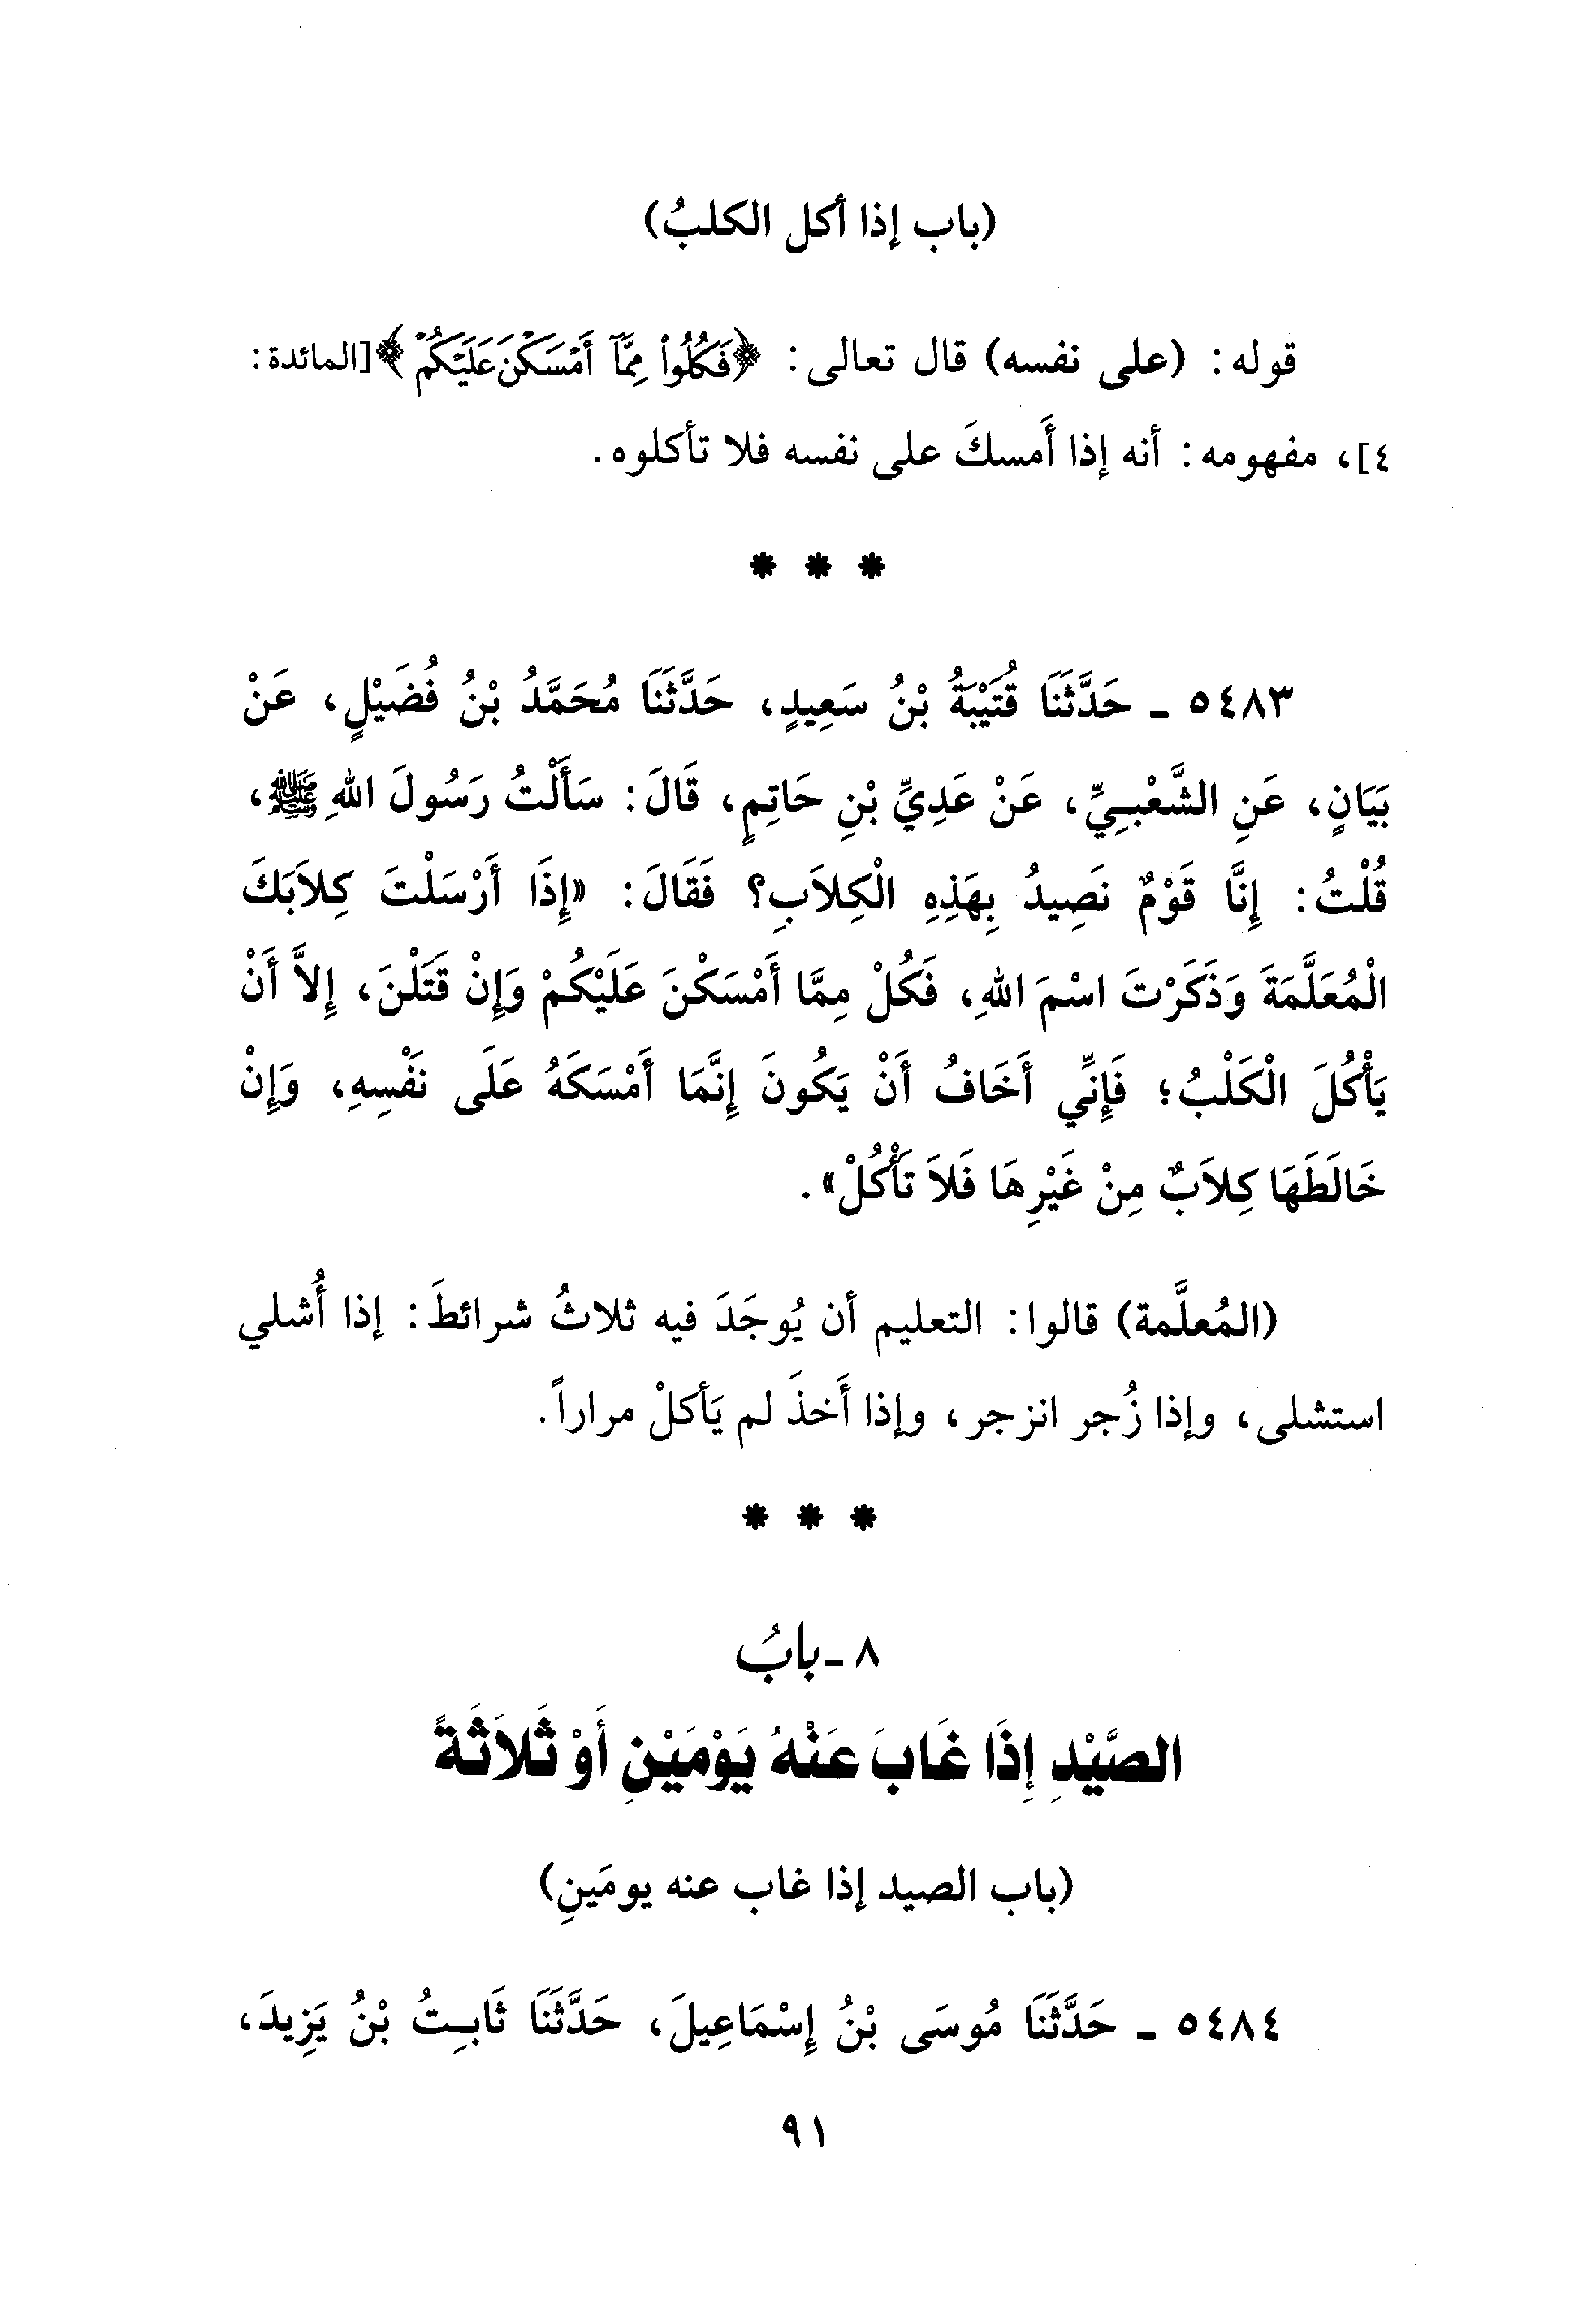 (باب إذا أكل الكلبُ)
قوله: (على نفسه) قال تعالى: ﴿فَكُلُواْ مِمَّآ أَمْسَكْنَ عَلَيْكُمْ﴾[المائدة:
٤]، مفهومه: أنه إذا أَمسكَ على نفسه فلا تأكلوه.
* * *
٥٤٨٣ ـ حَدَّثَنَا قُتَيْبَةُ بْنُ سَعِيدٍ، حَدَّثَنَا مُحَمَّدُ بْنُ فُضَيْلٍ، عَنْ
بَيَانٍ، عَنِ الشَّعْبِيِّ، عَنْ عَدِيِّ بْنِ حَاتِمٍ، قَالَ: سَأَلْتُ رَسُولَ اللهِ ﷺ،
قُلْتُ: إِنَّا قَوْمٌ نَصِيدُ بِهَذِهِ الْكِلاَبِ؟ فَقَالَ: «إِذَا أَرْسَلْتَ كِلاَبَكَ
الْمُعَلَّمَةَ وَذَكَرْتَ اسْمَ اللهِ، فَكُلْ مِمَّا أَمْسَكْنَ عَلَيْكُمْ وَإِنْ قَتَلْنَ، إِلاَّ أَنْ
يَأْكُلَ الْكَلْبُ؛ فَإِنِّي أَخَافُ أَنْ يَكُونَ إِنَّمَا أَمْسَكَهُ عَلَى نَفْسِهِ، وَإِنْ
خَالَطَهَا كِلاَبٌ مِنْ غَيْرِهَا فَلاَ تَأْكُلْ».
(المُعلَّمة) قالوا: التعليم أن يُوجَدَ فيه ثلاثُ شرائطَ: إذا أُشلي
استشلى، وإذا زُجر انزجر، وإذا أَخذَ لم يَأكلْ مراراً.
* * *
٨ ـ بابُ
الصَّيْدِ إِذَا غَابَ عَنْهُ يَوْمَيْنِ أَوْ ثَلاَثَةً
(باب الصيد إذا غاب عنه يومَينِ)
٥٤٨٤ ـ حَدَّثَنَا مُوسَى بْنُ إِسْمَاعِيلَ، حَدَّثَنَا ثَابِتُ بْنُ يَزِيدَ،
٩١